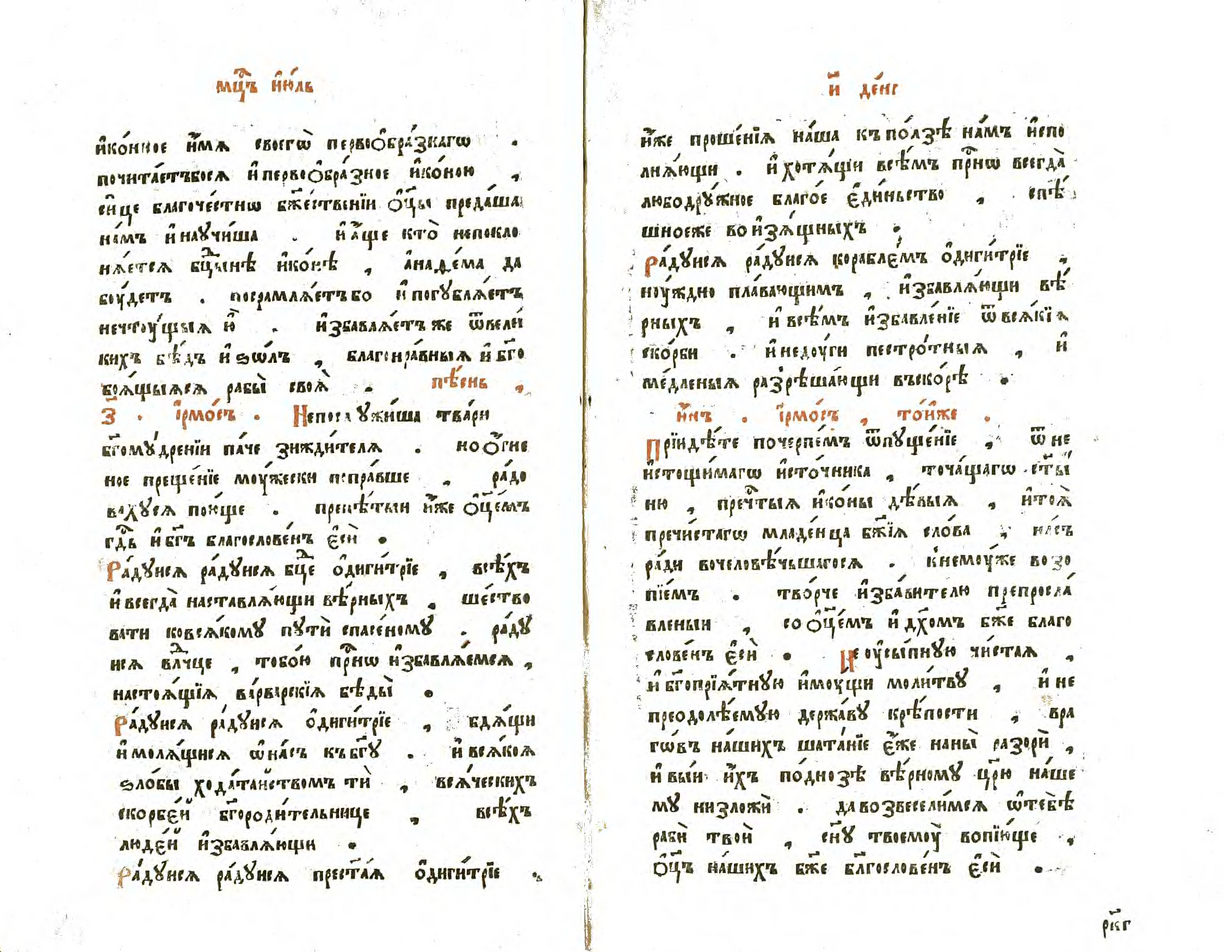 мц҃ъ и҆ю́ль
и҆ко́нное и҆́мѧ своегѡ̀ первоѻбра́знагѡ .
почита́етъбосѧ и҆первоѻбра́зное и҆ко́ною ,
си́це благоче́стнѡ бж҃е́ственїи ѻ҆ц҃ы̀ преда́ша
на́мъ и҆научи́ша . и҆а҆́ще кто̀ непокло
нѧ́етсѧ бц҃ынѣ и҆ко́нѣ , а҆на́ѳема да
бꙋ́детъ . посрамлѧ́етъбо и҆погублѧ́етъ
нечтꙋ́щыѧ ю҆̀ . и҆збавлѧ́етъже ѿвели́
кихъ бѣ́дъ и҆ѕѡ́лъ , благонра́вныѧ и҆бг҃о
боѧ́щыѧсѧ рабы̀ своѧ̀ . пѣ́снь ,
з҃ . і҆рмо́съ . Непослꙋжи́ша тва́ри
бг҃омꙋ́дренїи па́че зижди́телѧ . но ѻ҆́гне
ное преще́нїе мꙋ́жески попра́вше , ра́до
вахꙋсѧ пою́ще . препѣ́тыи и҆́же ѻ҆ц҃е́мъ
гд҃ь и҆бг҃ъ благослове́нъ є҆сѝ .
Ра́дꙋисѧ ра́дꙋисѧ бц҃е ѻ҆диги́трїе , всѣ́хъ
и҆всегда̀ наставлѧ́ющи вѣ́рныхъ , ше́ство
вати ковсѧ́комꙋ пꙋтѝ спасе́номꙋ . ра́дꙋ
исѧ влⷣчце , тобо́ю при́снѡ и҆збавлѧ́емсѧ ,
настоѧ́щїѧ ва́рварскїѧ бѣды̀ .
Ра́дꙋисѧ ра́дꙋисѧ ѻ҆диги́трїе , бдѧ́щи
и҆молѧ́щисѧ ѡ҆на́съ къбг҃ꙋ . и҆всѧ́коѧ
ѕло́бы хода́таиствомъ тѝ , всѧ́ческихъ
скорбе́й бг҃ороди́тельнице , всѣ́хъ
люде́й и҆збавлѧ́ющи .
Ра́дꙋисѧ ра́дꙋисѧ прест҃а́ѧ ѻ҆диги́трїе .
и҃ де́нь
и҆́же проше́нїѧ на́ша къпо́лзѣ на́мъ и҆спо
лнѧ́ющи . и҆хотѧ́щи всѣ́мъ при́снѡ всегда̀
любодрꙋ́жное благо́е є҆ди́ньство , спѣ́
шноеже воизѧ́щныхъ .
Ра́дꙋисѧ ра́дꙋисѧ корабле́мъ ѻ҆диги́трїе ,
нꙋ́ждно пла́вающимъ , и҆збавлѧ́ющи вѣ́
рныхъ , и҆всѣ́мъ и҆збавле́нїе ѿвсѧ́кїѧ
ско́рби . и҆недꙋ́ги пестро́тныѧ , и҆
ме́дленыѧ разрѣша́ющи въско́рѣ .
и҆́нъ . і҆рмо́съ , то́йже .
Прїидѣ́те почерпе́мъ ѿпꙋще́нїе , ѿне
и҆стощи́магѡ и҆сто́чника , точа́щагѡ ст҃ы́
ню , пречⷭ҇тыѧ и҆ко́ны дѣ́выѧ , и҆тоѧ̀
пречи́стагѡ младе́нца бж҃їѧ сло́ва , на́съ
ра́ди вочеловѣ́чьшагосѧ . к҆немꙋ́же возо
пїе́мъ . тво́рче и҆збави́телю препросла́
вленыи , со ѻ҆ц҃е́мъ и҆дх҃омъ бж҃е благо
слове́нъ є҆сѝ . Неꙋсы́пнꙋю чи́стаѧ ,
и҆бг҃опрїѧ́тнꙋю и҆мꙋ́щи моли́твꙋ , и҆не
преодолѣ́емꙋю держа́вꙋ крѣ́пости , вра
гѡ́въ на́шихъ шата́нїе є҆́же наны̀ разорѝ ,
и҆вы́и и҆́хъ по́днозѣ вѣ́рномꙋ цр҃ю̀ на́ше
мꙋ низложѝ . давозвесели́мсѧ ѡ҆тебѣ̀
рабѝ твоѝ , сн҃ꙋ твоемꙋ̀ вопїю́ще ,
ѻ҆ц҃ъ на́шихъ бж҃е бл҃гослове́нъ є҆сѝ .
рк҃г